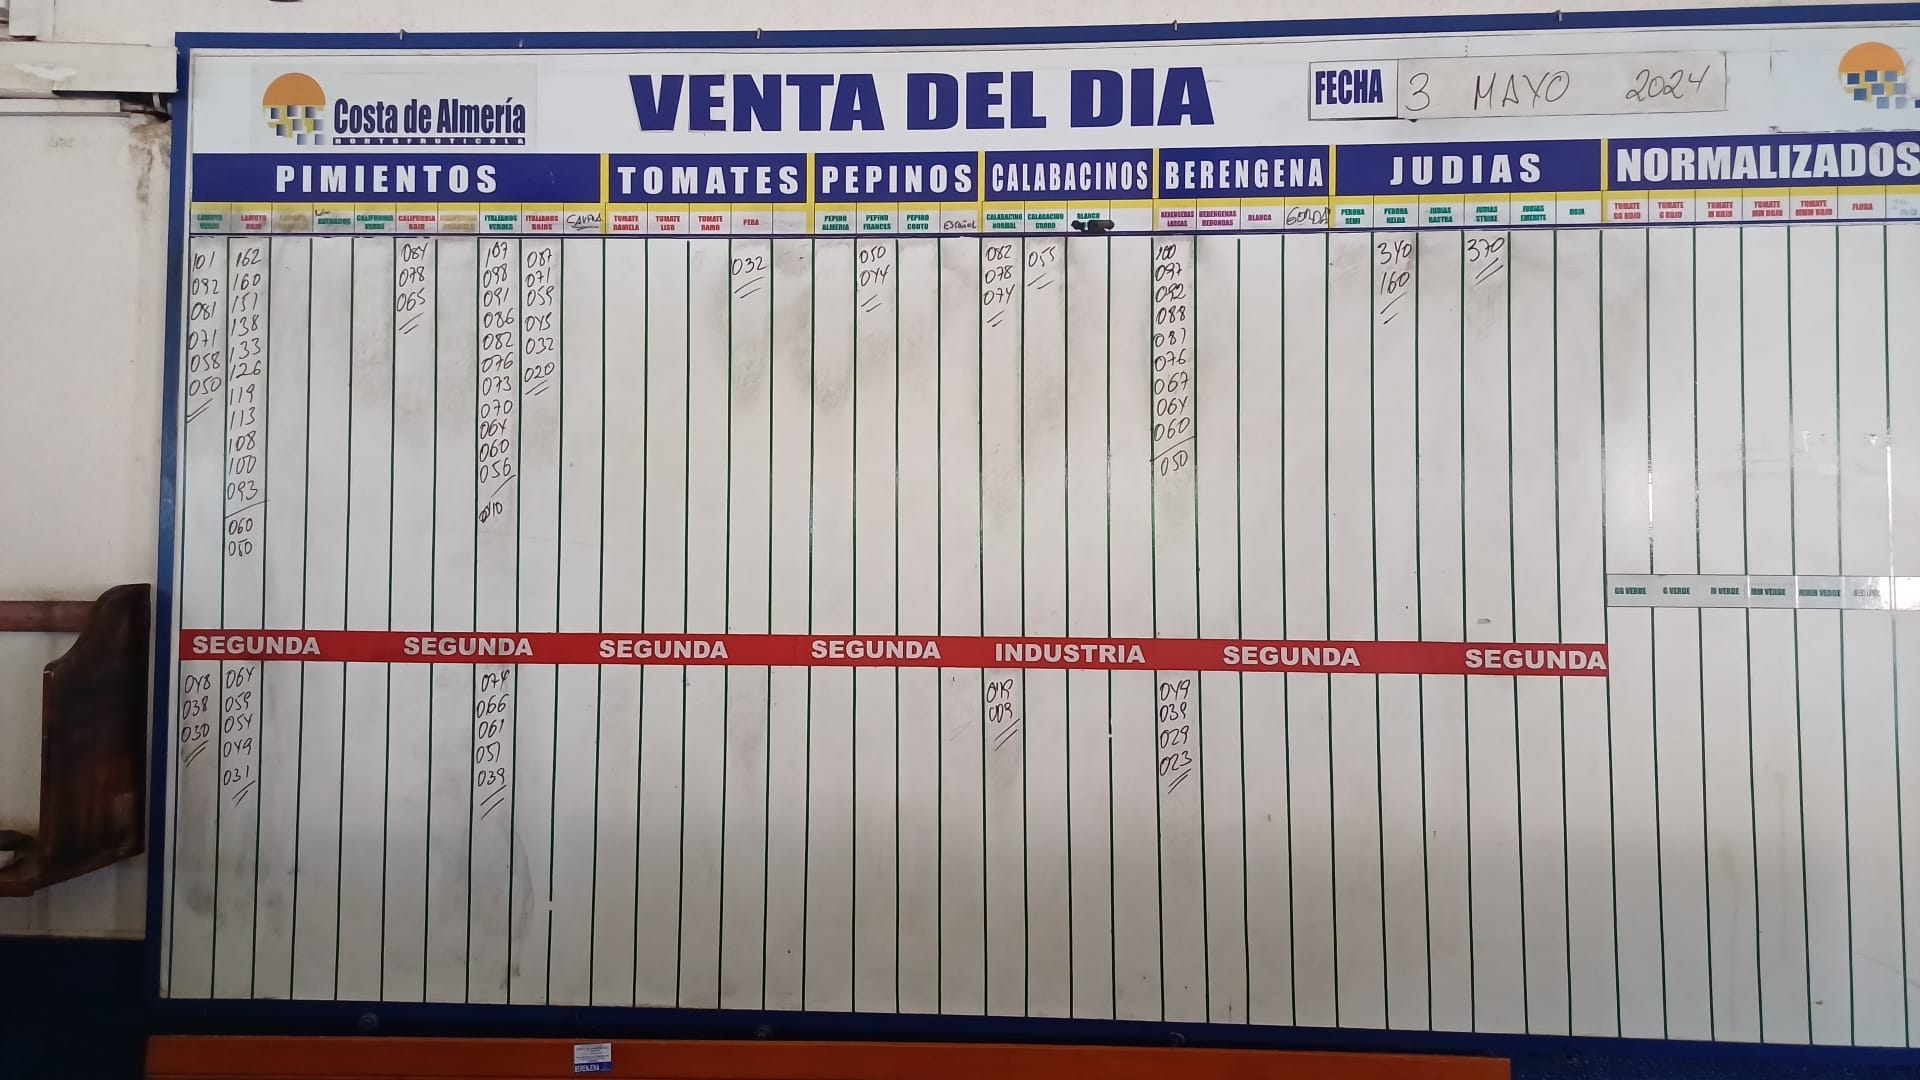 Costa de Almería
HORTOFRUTICOLA
VENTA DEL DIA
FECHA 3 MAYO 2024
PIMIENTOS TOMATES PEPINOS CALABACINOS BERENGENA JUDIAS NORMALIZADOS
LAMUYO VERDE
LAMUYO ROJO
ASURADOS
CALIFORNIA VERDE
CALIFORNIA ROJO
CALIFORNIA AMARILLO
ITALIANOS VERDES
ITALIANOS ROJOS
TOMATE DANIELA
TOMATE LISO
TOMATE RAMO
PERA
PEPINO ALMERIA
PEPINO FRANCES
PEPINO CORTO
ESPAÑOL
CALABACINO NORMAL
CALABACINO GORDO
BLANCO
BERENGENAS LARGAS
BERENGENAS REDONDAS
BLANCA
GORDA
PERONA SEMI
PERONA HELDA
JUDIAS RASTRA
JUDIAS STRIKE
JUDIAS EMERITE
ROJA
TOMATE GG ROJO
TOMATE G ROJO
TOMATE M ROJO
TOMATE MM ROJO
TOMATE MMM ROJO
FLORA
101
092
081
071
058
050
162
160
151
138
133
126
119
113
108
100
093
060
050
084
078
065
107
098
091
086
082
076
073
070
064
060
056
087
071
059
045
032
020
032
050
044
082
078
074
055
100
097
092
088
081
076
067
064
060
050
340
160
370
GG VERDE G VERDE M VERDE MM VERDE MMM VERDE
SEGUNDA SEGUNDA SEGUNDA SEGUNDA INDUSTRIA SEGUNDA SEGUNDA
048
038
030
064
059
054
049
031
074
066
061
051
039
019
009
049
039
029
023
BERENJENA